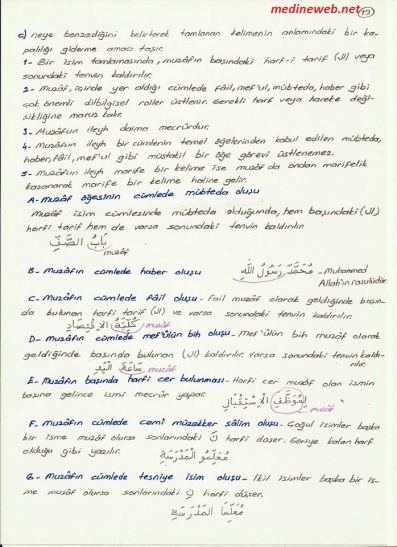 medineweb.net
19
c) neye benzediğini belirterek tamlanan kelimenin anlamındaki bir ka-
palılığı giderme amacı taşır.
1- Bir isim tamlamasında, muzâfın başındaki harf-i tarif (ال) veya
sonundaki tenvin kaldırılır.
2- Muzâf, içinde yer aldığı cümlede fâil, mef'ul, mübteda, haber gibi
çok önemli dilbilgisel roller üstlenir. Gerekli harf veya hareke deği-
sikliğine maruz kalır.
3- Muzâfun ileyh daima mecrûrdur.
4- Muzâfun ileyh bir cümlenin temel öğelerinden kabul edilen mübteda,
haber, fâil, mef'ul gibi müstakil bir öğe görevi üstlenemez.
5- Muzâfun ileyh marife bir kelime ise muzâf da ondan marifelik
kazanarak marife bir kelime haline gelir.
A- Muzâf öğesinin cümlede mübteda oluşu
Muzâf isim cümlesinde mübteda olduğunda, hem başındaki (ال)
harfi tarif hem de varsa sonundaki tenvin kaldırılır
بَابُ الصَّفِّ
muzâf
B- Muzâfın cümlede haber oluşu مُحَمَّدٌ رَسُولُ اللهِ - Muhammed
Allah'ın rasulüdür.
C- Muzâfın cümlede fâil oluşu - Fail muzâf olarak geldiğinde başın-
da bulunan harfi tarif (ال) ve varsa sonundaki tenvin kaldırılır.
كُلِّيَّةُ الاِقْتِصَادِ muzâf
D- Muzâfın cümlede mef'ûlün bih oluşu - Mef'ûlün bih muzâf olarak
geldiğinde başında bulunan (ال) kaldırılır. Varsa sonundaki tenvin kaldı-
rılır.
سَاعَةَ الْيَدِ muzâf
E- Muzâfın başında harfi cer bulunması - Harfi cer muzâf olan ismin
başına gelince ismi mecrûr yapar.
لِمُوَظَّفِ الاِسْتِقْبَالِ
muzâf
F- Muzâfın cümlede cemi müzekker sâlim oluşu - Çoğul isimler başka
bir isme muzâf olursa sonlarındaki ن harfi düşer. Geriye kalan harf
olduğu gibi yazılır.
مُعَلِّمُو الْمَدْرَسَةِ
G- Muzâfın cümlede tesniye isim oluşu - İkil isimler başka bir is-
me muzâf olursa sonlarındaki ن harfi düşer.
مُعَلِّمَا الْمَدْرَسَةِ